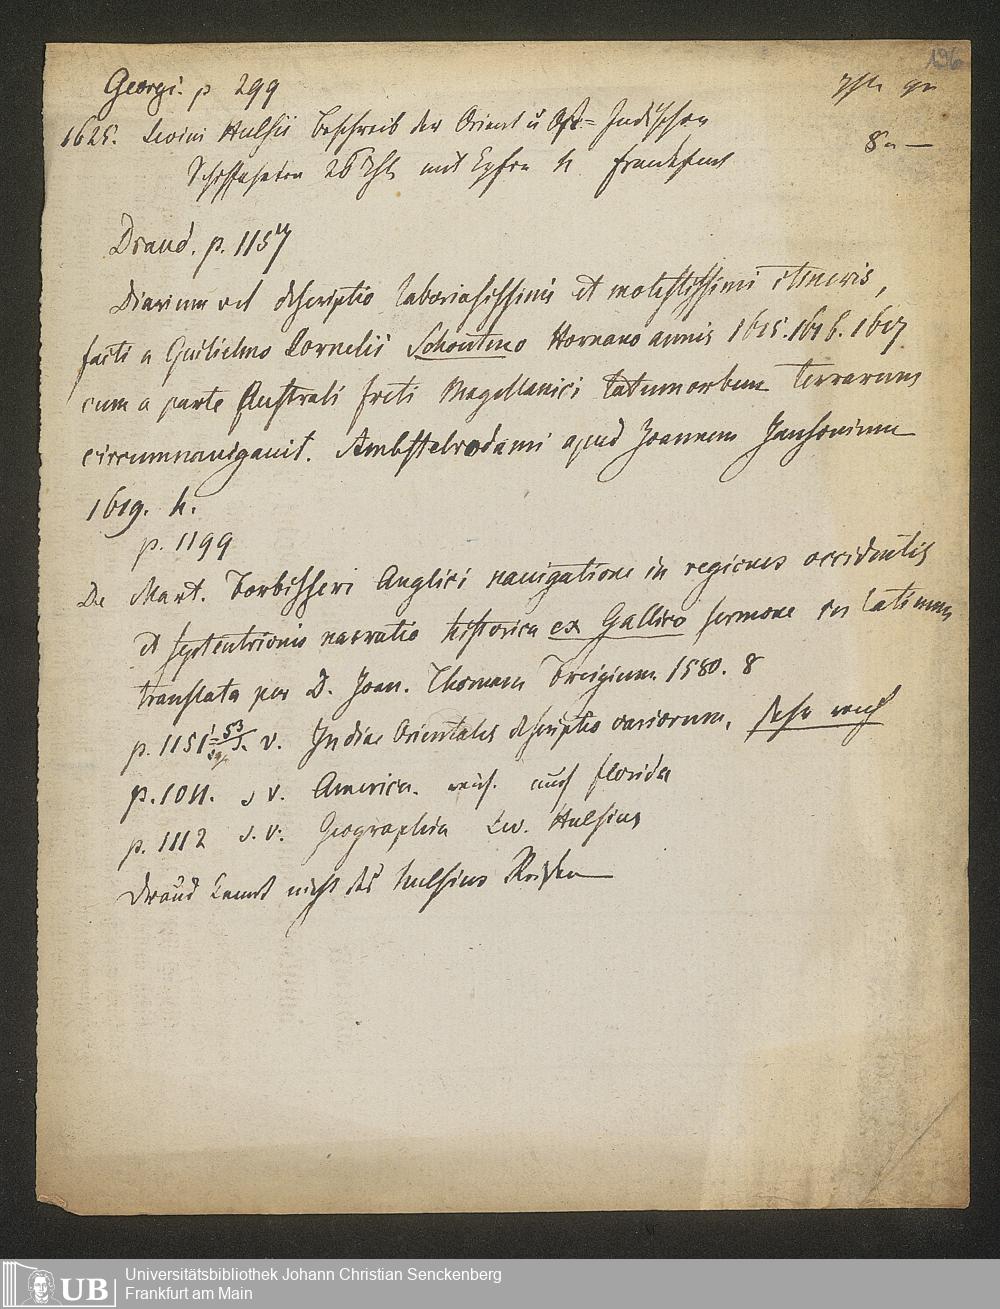 196
Georgi. p 299 rth gr
1625. Levini Hulsii Beschreib der Orient u Ost= Indischen 8 " —
Schiffahrten 26 Thl mit Kpfrn 4 Frankfurt
Draud. p. 1157
Diarium vel descriptio laboriosissimi et molestissimi itineris,
facti a Guilielmo Cornelii Schoutenio Hornano annis 1615. 1616. 1617
cum a parte Australi freti Magellanici totum orbem terrarum
circumnauigauit. Ambstelrodami apud Joannem Jansonium
1619. 4.
p. 1199
De Mart. Forbisseri Anglici nauigatione in regiones occidentis
et septentrionis narratio historica ex Gallico sermone in latinum
translata per D. Joan. Thomam Freigium 1580. 8
p. 1151-53 sq. s. v. Indiae Orientalis descriptio variorum. sehr reich
p. 1011. s v. America. reich. auch Florida
p. 1112 s. v. Geographia Lev. Hulsius
Draud kennt nicht des Hulsius Reisen
UB
Universitätsbibliothek Johann Christian Senckenberg
Frankfurt am Main